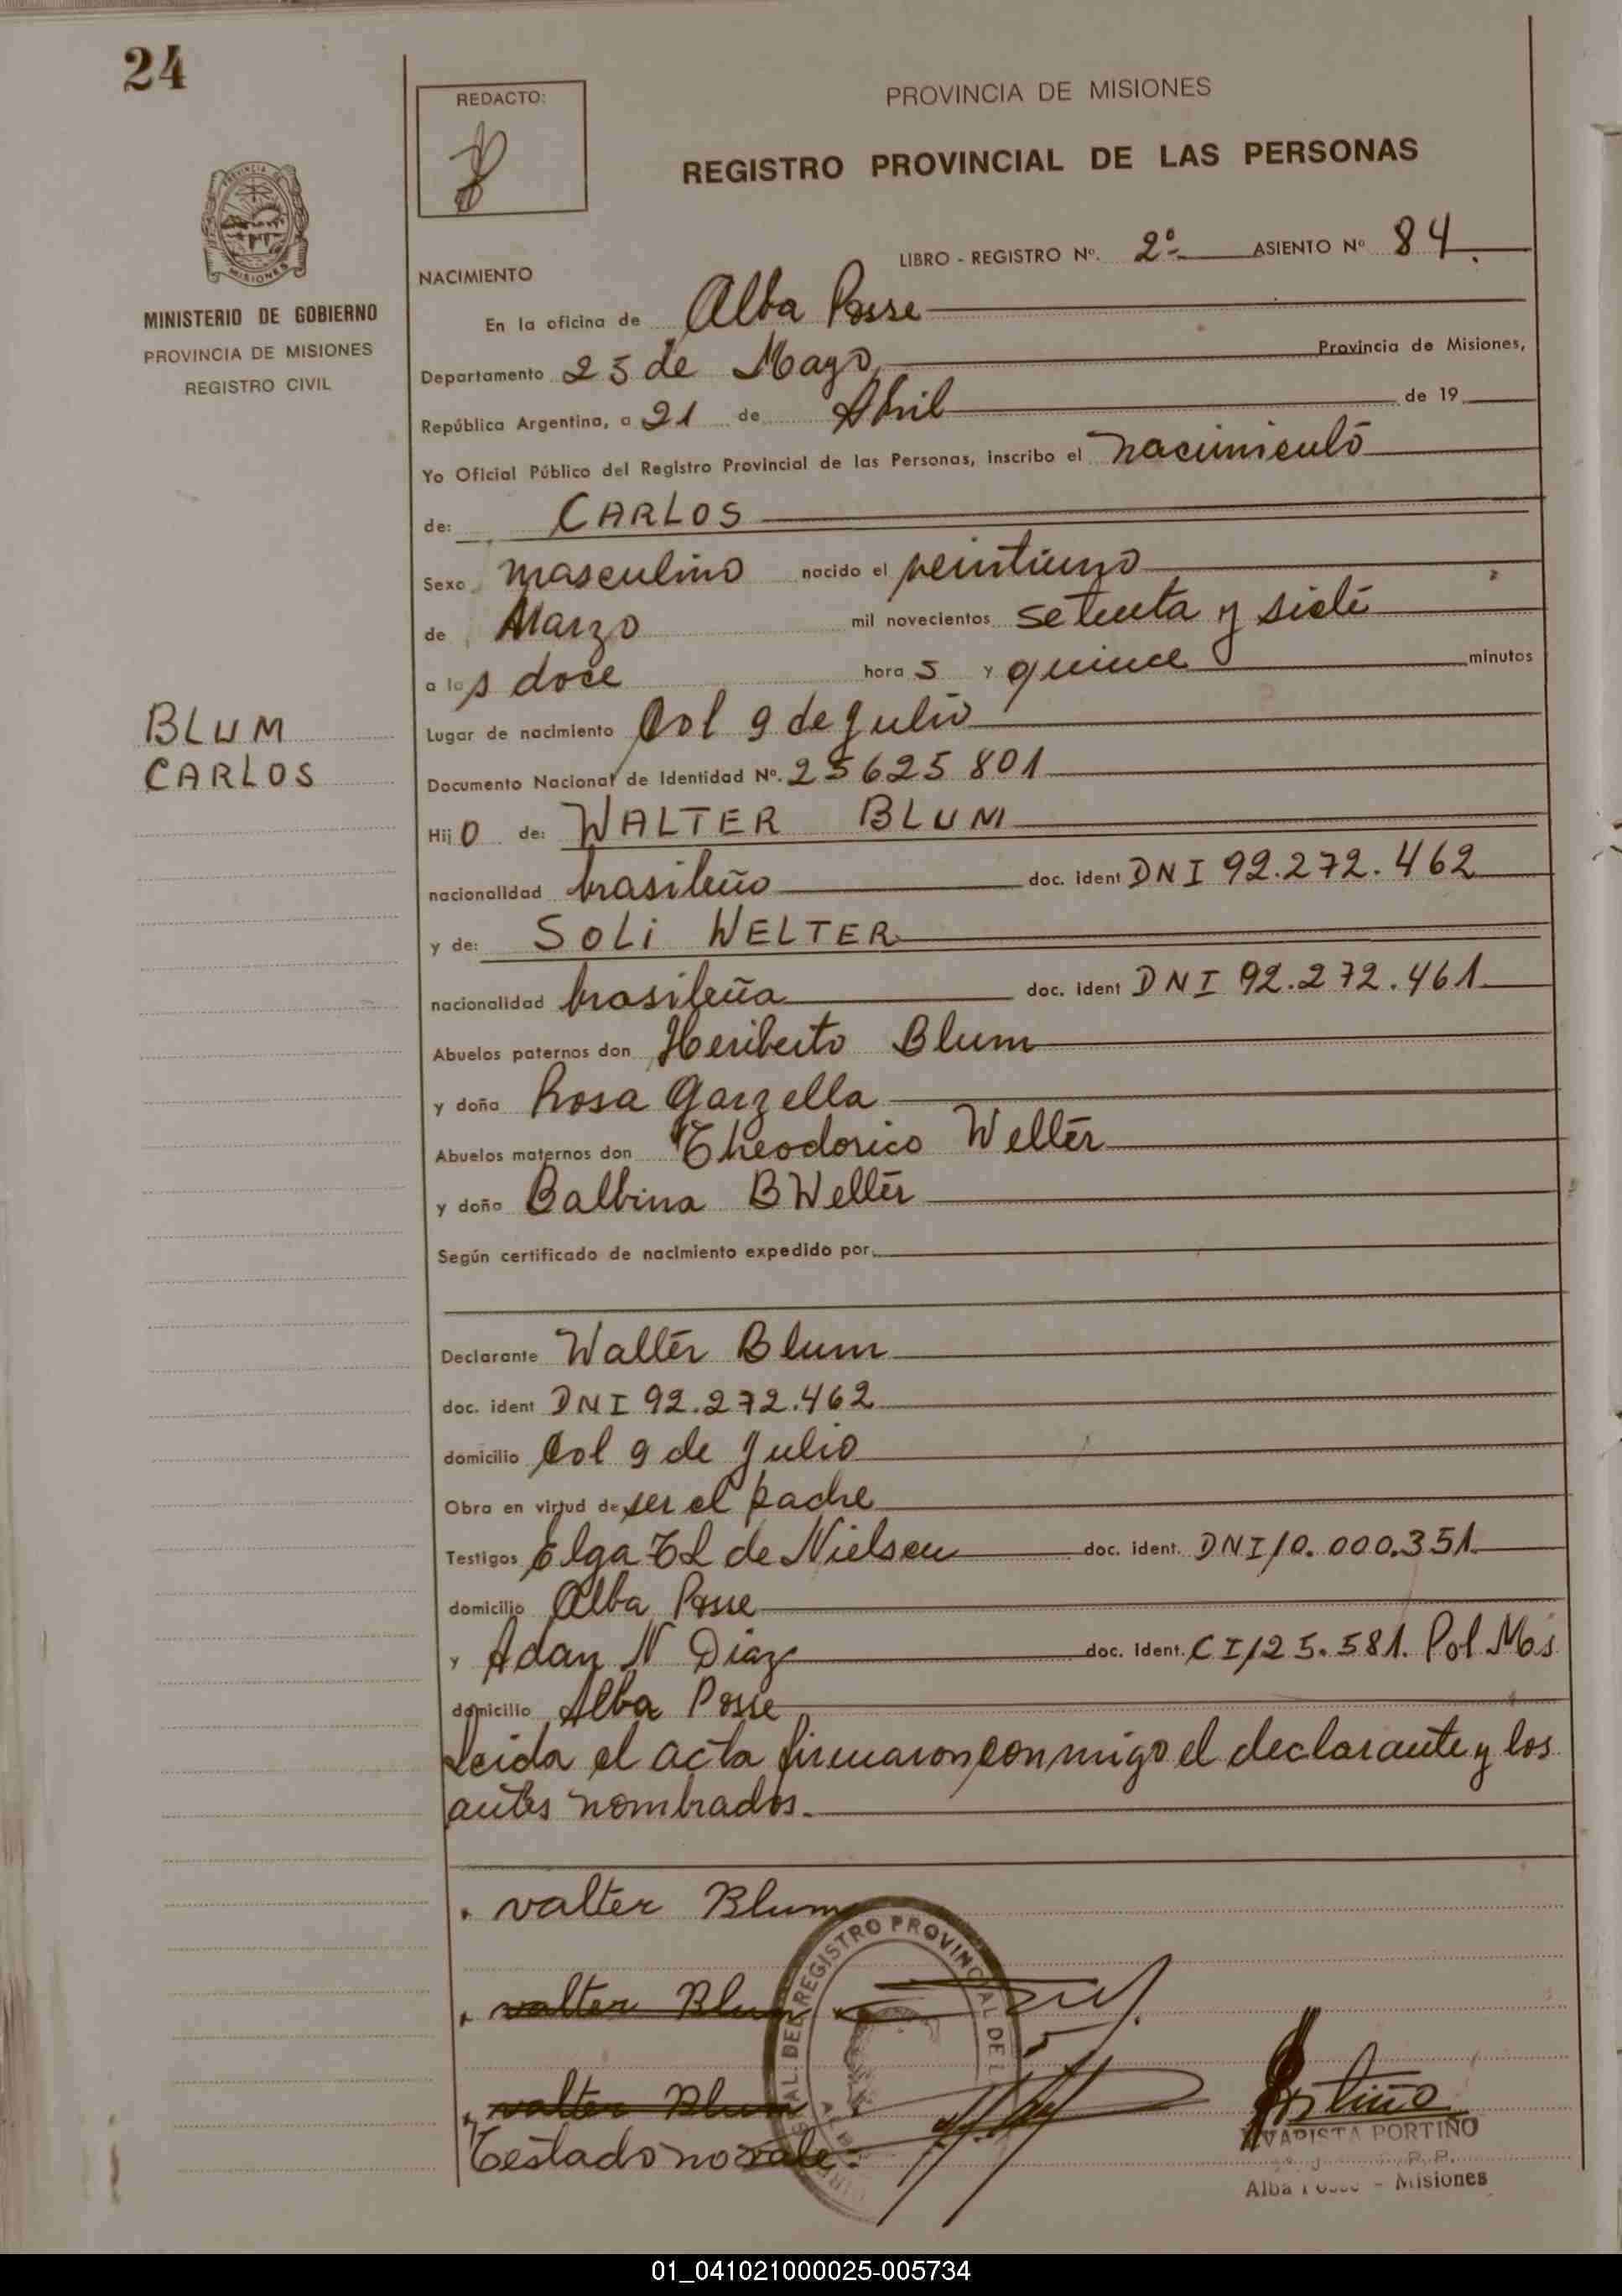 24
REDACTO:
PROVINCIA DE MISIONES
REGISTRO PROVINCIAL DE LAS PERSONAS
LIBRO - REGISTRO Nº. 2º ASIENTO Nº 84.
NACIMIENTO
MINISTERIO DE GOBIERNO
PROVINCIA DE MISIONES
REGISTRO CIVIL
En la oficina de Alba Posse
Departamento 25 de Mayo Provincia de Misiones,
República Argentina, a 21 de Abril de 19
Yo Oficial Público del Registro Provincial de las Personas, inscribo el nacimiento
de: CARLOS
Sexo masculino nacido el veintiuno
de Marzo mil novecientos setenta y siete
a las doce horas y quince minutos
BLUM
CARLOS
Lugar de nacimiento Col 9 de Julio
Documento Nacional de Identidad Nº. 25625801
Hijo de: WALTER BLUM
nacionalidad brasileño doc. ident DNI 92.272.462
y de: SOLI WELTER
nacionalidad brasileña doc. ident DNI 92.272.461
Abuelos paternos don Heriberto Blum
y doña Rosa Garzella
Abuelos maternos don Theodorico Welter
y doña Balbina B Welter
Según certificado de nacimiento expedido por
Declarante Walter Blum
doc. ident DNI 92.272.462
domicilio Col 9 de Julio
Obra en virtud de ser el padre
Testigos Elga TL de Nielsen doc. ident. DNI 10.000.351
domicilio Alba Posse
y Adan N Diaz doc. ident. CI 125.581. Pol Mos
domicilio Alba Posse
Leida el acta firmaron conmigo el declarante y los
antes nombrados.
valter Blum
valter Blum
valter Blum
Testado no vale.
REGISTRO PROVINCIAL DE L
Portiño
VARISTA PORTIÑO
Alba Posse - Misiones
01_041021000025-005734